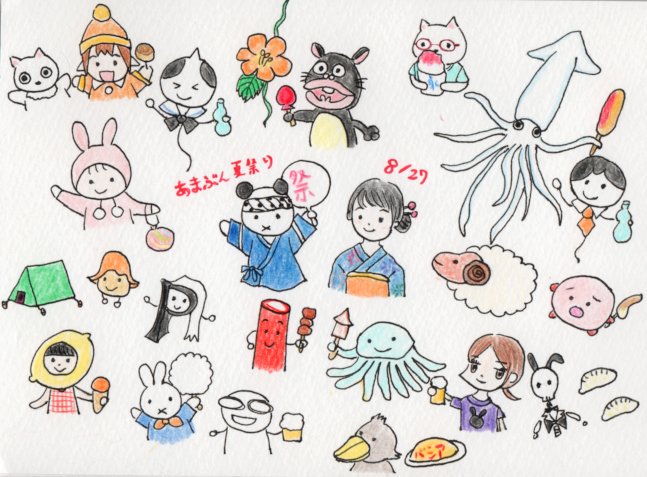 あまぶん夏祭り
8/27
祭
バシア